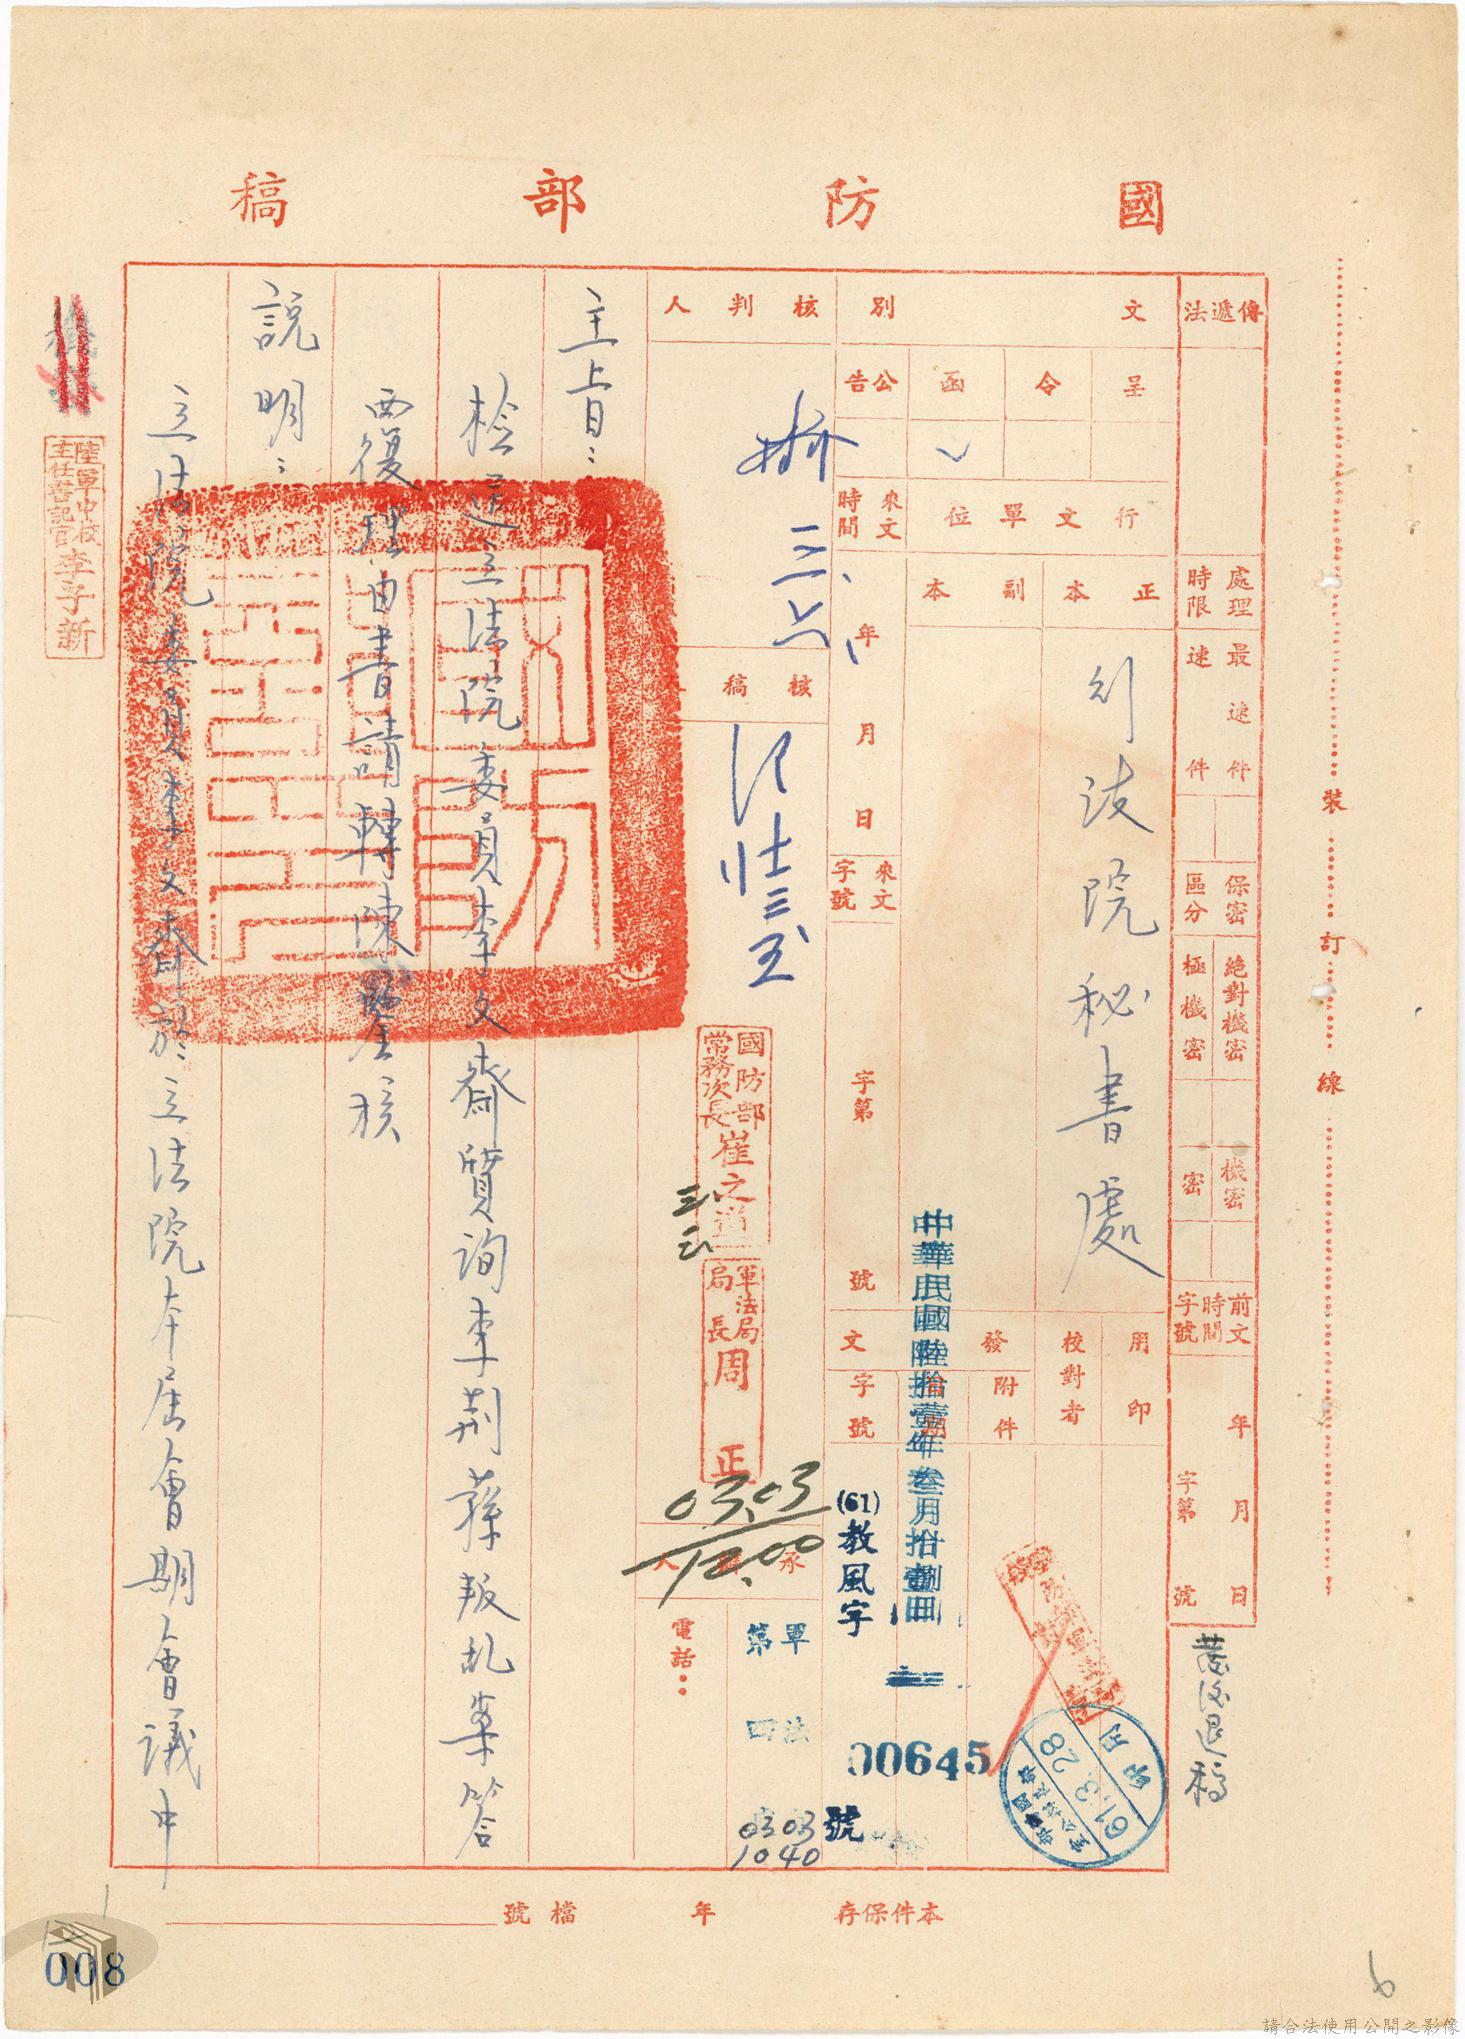 國防部稿
傳遞法
處理時限
最速件
速件
保密區分
絕對機密
極機密
機密
密
前文時間字號
年月日
字第號
文別
呈
令
函
公告
行文單位
正本
副本
行政院秘書處
來文時間
年月日
來文字號
字第號
用印
校對者
發文
附件
字號
中華民國陸拾壹年叁月拾捌日
(61)教風字
00645
號
核判人
三、六、
核稿
國防部常務次長崔之道
三、三
軍法局局長周正
03.03
12.00
承辦人
軍法
第四
電話:
0303
1040
主旨:
檢送立法院委員李文齋質詢李荊蓀叛亂案答
覆理由書請轉陳鑒核
說明:
立法院委員李文齋於立法院本屆會期會議中
陸軍中校主任書記官李子新
發後退稿
印用
61.3.28
裝訂線
本件保存 年 檔號
008
6
請合法使用公開之影像